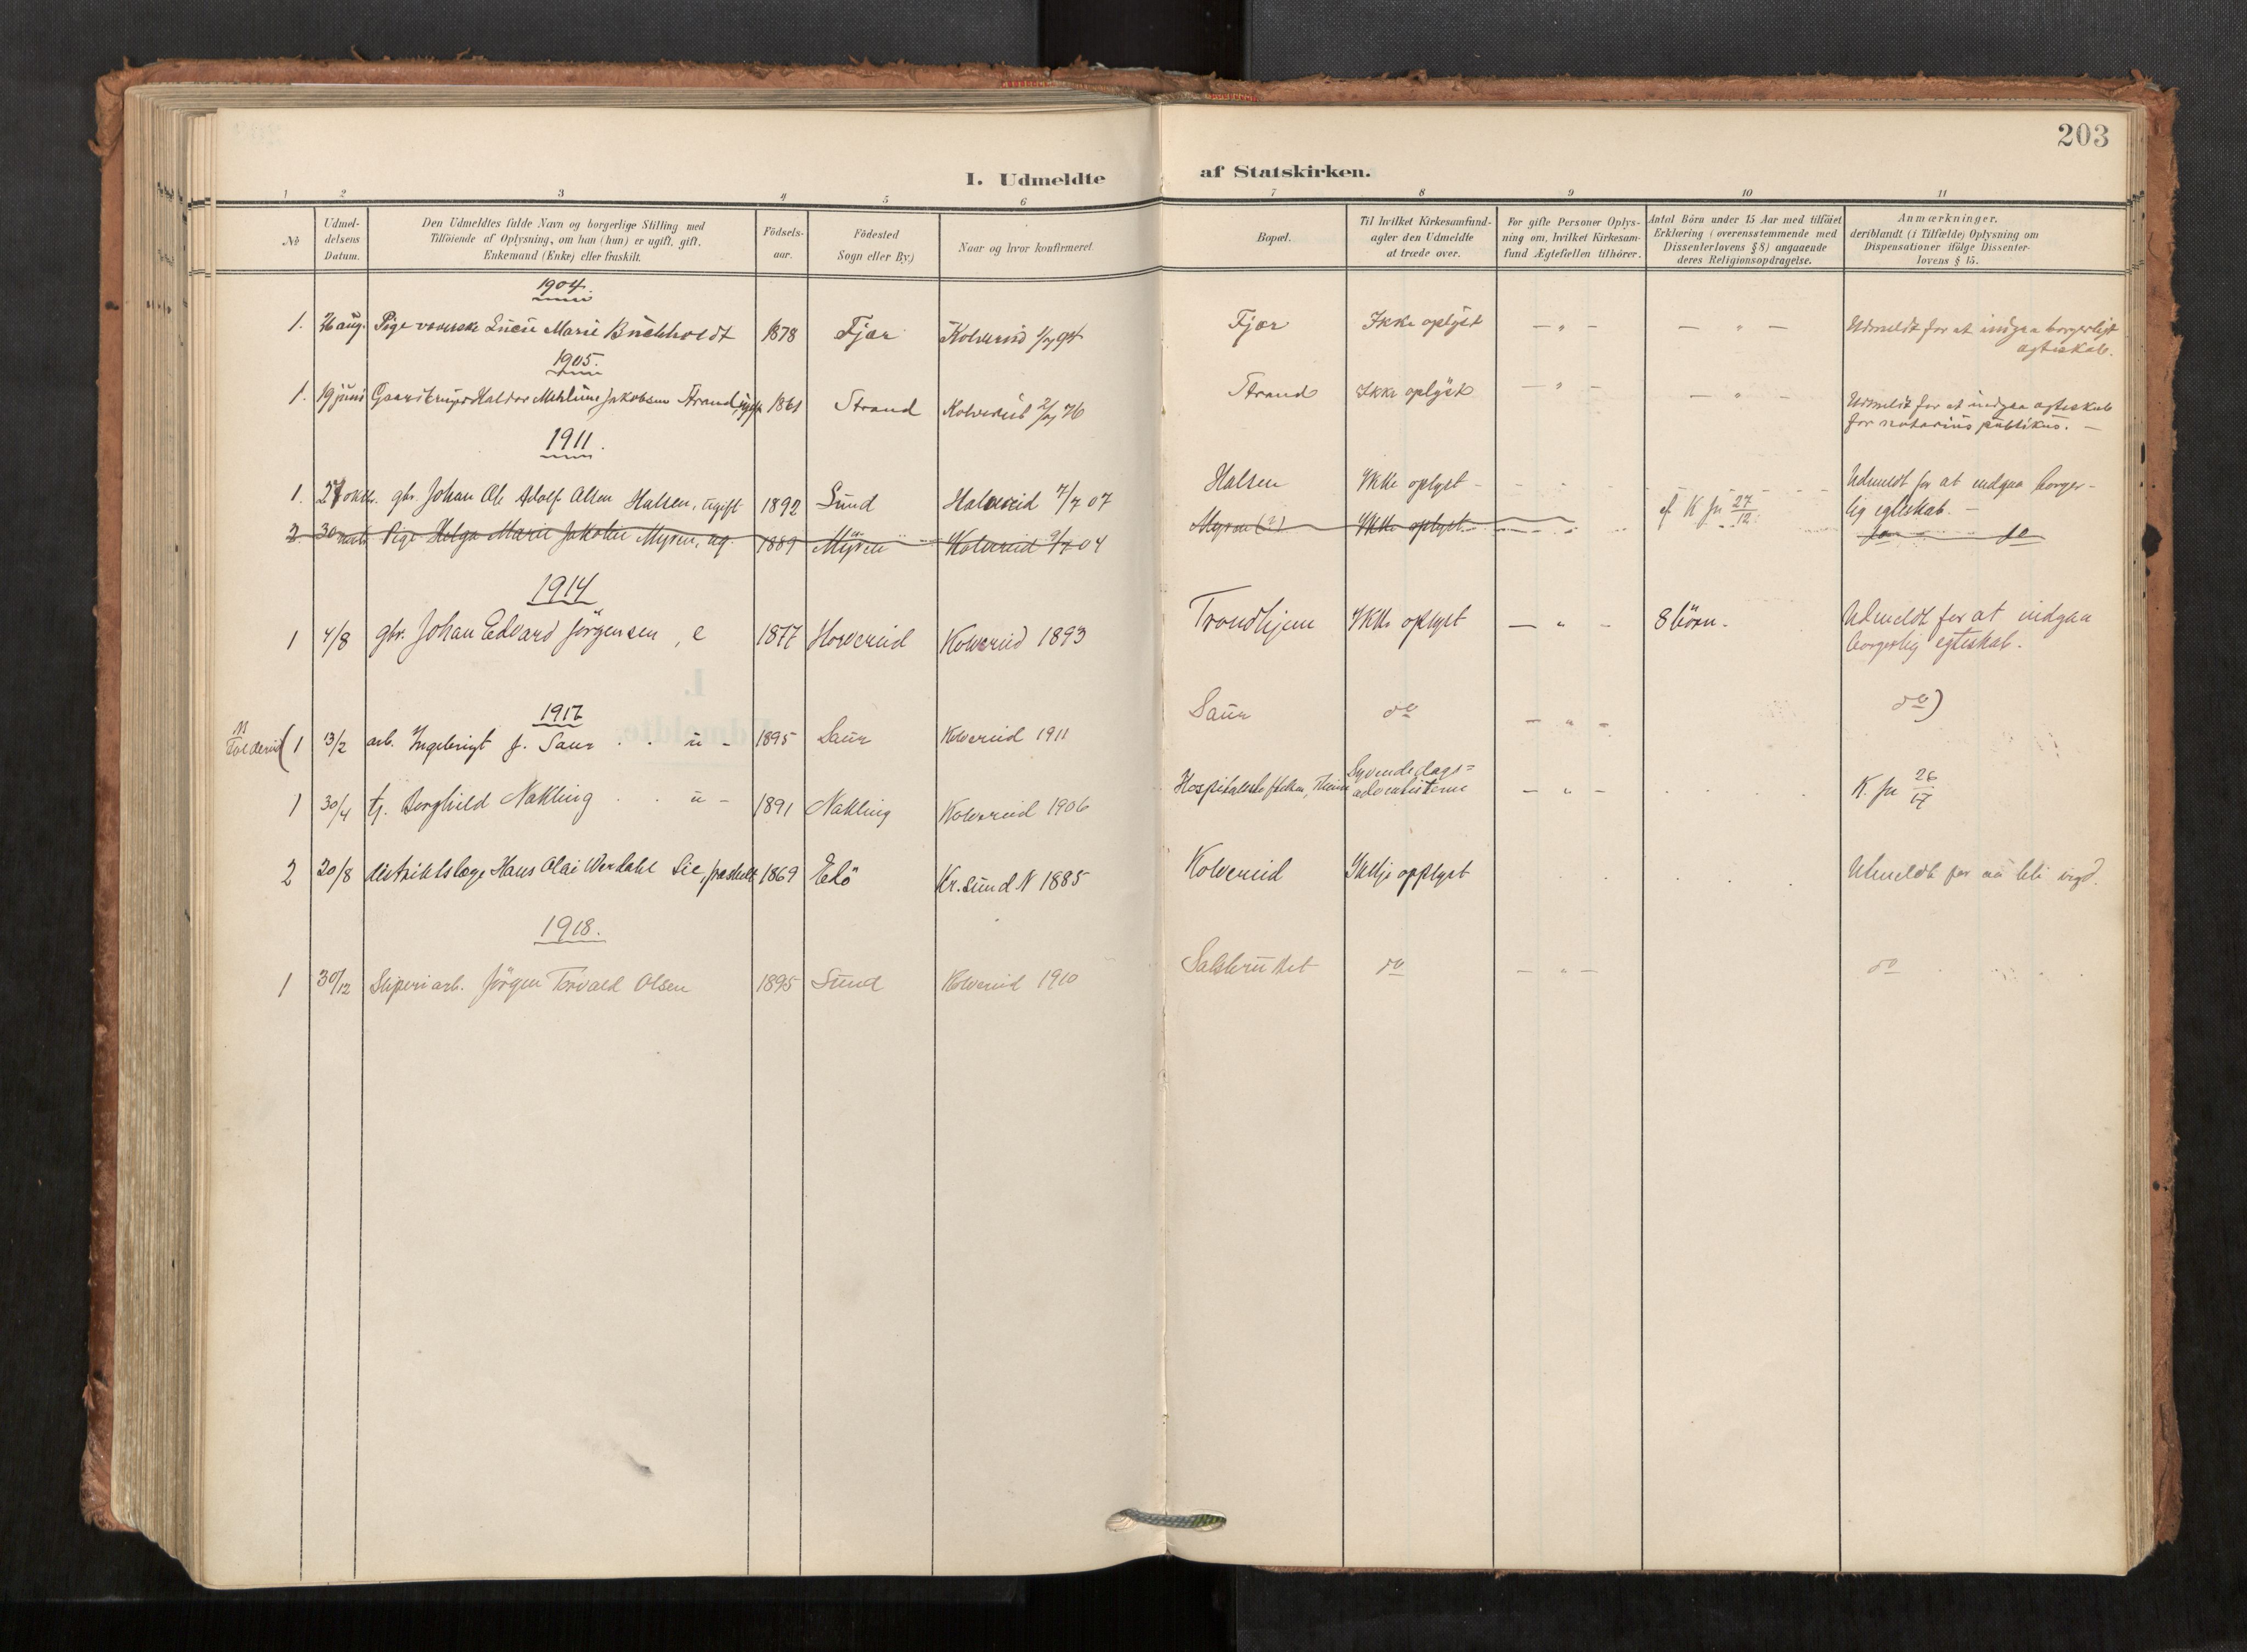 203
I. Udmeldte af Statskirken.
1 2 3 4 5 6 7 8 9 10 11
No
Udmeldelsens Datum.
Den Udmeldtes fulde Navn og borgerlige Stilling med
Tilföiende af Oplysning, om han (hun) er ugift, gift,
Enkemand (Enke) eller fraskilt.
Födsels-
aar.
Födested
Sogn eller By)
Naar og hvor konfirmeret.
Bopæl.
Til hvilket Kirkesamfund-
agter den Udmeldte
at træde over.
For gifte Personer Oplys-
ning om, hvilket Kirkesam-
fund Ægtefællen tilhörer.
Antal Börn under 15 Aar med tilföiet
Erklæring (overensstemmende med
Dissenterlovens § 8) angaaende
deres Religionsopdragelse.
Anmærkninger,
deriblandt (i Tilfælde) Oplysning om
Dispensationer ifölge Dissenter-
lovens § 15.
1904.
1. 26 aug. Pige Marie Buchholdt 1878 Fjær Kolvereid Fjær Ikke oplyst — " — — " — Udmeldt for at indgaa borgerligt
ægteskab.
1905.
1. 19 juni Haldor Jakobsen Strand, 1861 Strand Kolvereid 76 Strand Ikke oplyst — " — — " — Udmeldt for at indgaa ægteskab
for notarius publikus. —
1911.
1. 27 oktbr. gbr. Johan Ole Adolf Olsen Halsen, ugift 1892 Sund Kolvereid 7/7 07 Halsen Ikke oplyst - Udmeldt for at indgaa borger-
lig egteskab. —
2. 30 Pige Helga Marie Jakobie Myren, ug. 1889 Myren Kolvereid 04 Myren (?) Ikke oplyst 27/12 do
1914
1 4/8 gbr. Johan Edvard Jörgensen, e 1877 Horvereid Kolvereid 1893 Trondhjem Ikke oplyst — " - 8 börn. Udmeldt for at indgaa
borgerlig egteskab.
1917
(1 13/2 arb. Ingebrigt J. Saur . . u - 1895 Saur Kolvereid 1911 Saur do — " — do)
1 30/4 tj. Borghild Nakling . . u - 1891 Nakling Kolvereid 1906 Syvendedags=
adventisterne — " — 26/17
2 20/8 distriktslæge Hans Olai Werdahl Lie, fraskilt 1869 Edö Kr.sund N 1885 Kolvereid Ikkje opplyst Udmeldt for aa bli vigd.
1918.
1 30/12 Sliperiarb. Jörgen Torvald Olsen 1895 Sund Kolvereid 1910 Salsbruket do — " — do